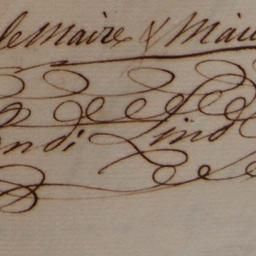 le Maire & Mai
ndi Lind